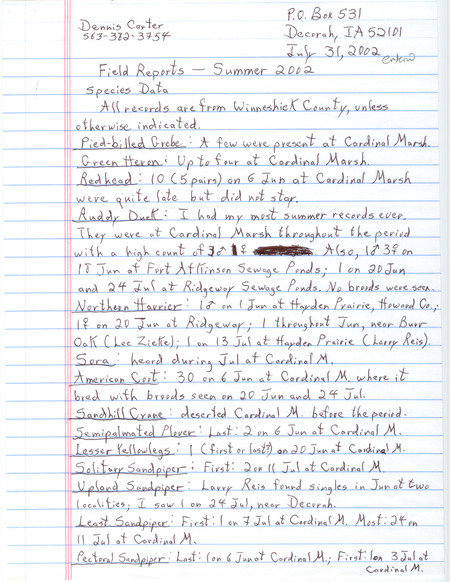 Dennis Carter
563-382-3754
P.O. Box 531
Decorah, IA 52101
July 31, 2002
entered
Field Reports — Summer 2002
Species Data
All records are from Winneshiek County, unless
otherwise indicated.
Pied-billed Grebe: A few were present at Cardinal Marsh.
Green Heron: Up to four at Cardinal Marsh.
Redhead: 10 (5 pairs) on 6 Jun at Cardinal Marsh
were quite late but did not stay.
Ruddy Duck: I had my most summer records ever.
They were at Cardinal Marsh throughout the period
with a high count of 3♂ 1♀ Also, 1♂ 3♀ on
18 Jun at Fort Atkinson Sewage Ponds; 1 on 20 Jun
and 24 Jul at Ridgeway Sewage Ponds. No broods were seen.
Northern Harrier: 1♂ on 1 Jun at Hayden Prairie, Howard Co.;
1♀ on 20 Jun at Ridgeway; 1 throughout Jun, near Burr
Oak (Lee Zieke); 1 on 13 Jul at Hayden Prairie (Larry Reis).
Sora: heard during Jul at Cardinal M.
American Coot: 30 on 6 Jun at Cardinal M. where it
bred with broods seen on 20 Jun and 24 Jul.
Sandhill Crane: deserted Cardinal M. before the period.
Semipalmated Plover: Last: 2 on 6 Jun at Cardinal M.
Lesser Yellowlegs: 1 (first or last?) on 20 Jun at Cardinal M.
Solitary Sandpiper: First: 2 on 11 Jul at Cardinal M.
Upland Sandpiper: Larry Reis found singles in Jun at two
localities; I saw 1 on 24 Jul, near Decorah.
Least Sandpiper: First: 1 on 7 Jul at Cardinal M. Most: 24 on
11 Jul at Cardinal M.
Pectoral Sandpiper: Last: 1 on 6 Jun at Cardinal M.; First: 1 on 3 Jul at
Cardinal M.